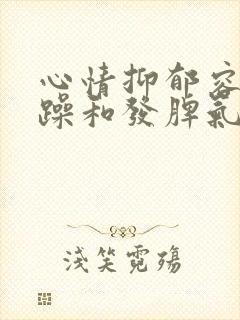 心情抑郁容
躁和發脾氣
淺笑霓殤